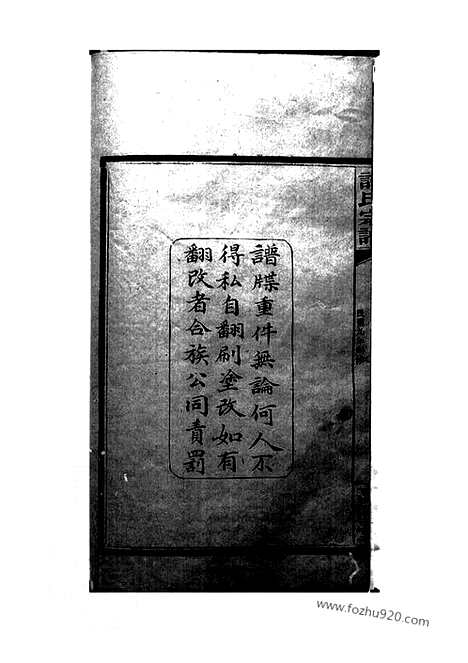 譜牒重件無論何人不
得私自翻刷塗改如有
翻改者合族公同責罰
氏宗譜
www.fozhu920.com